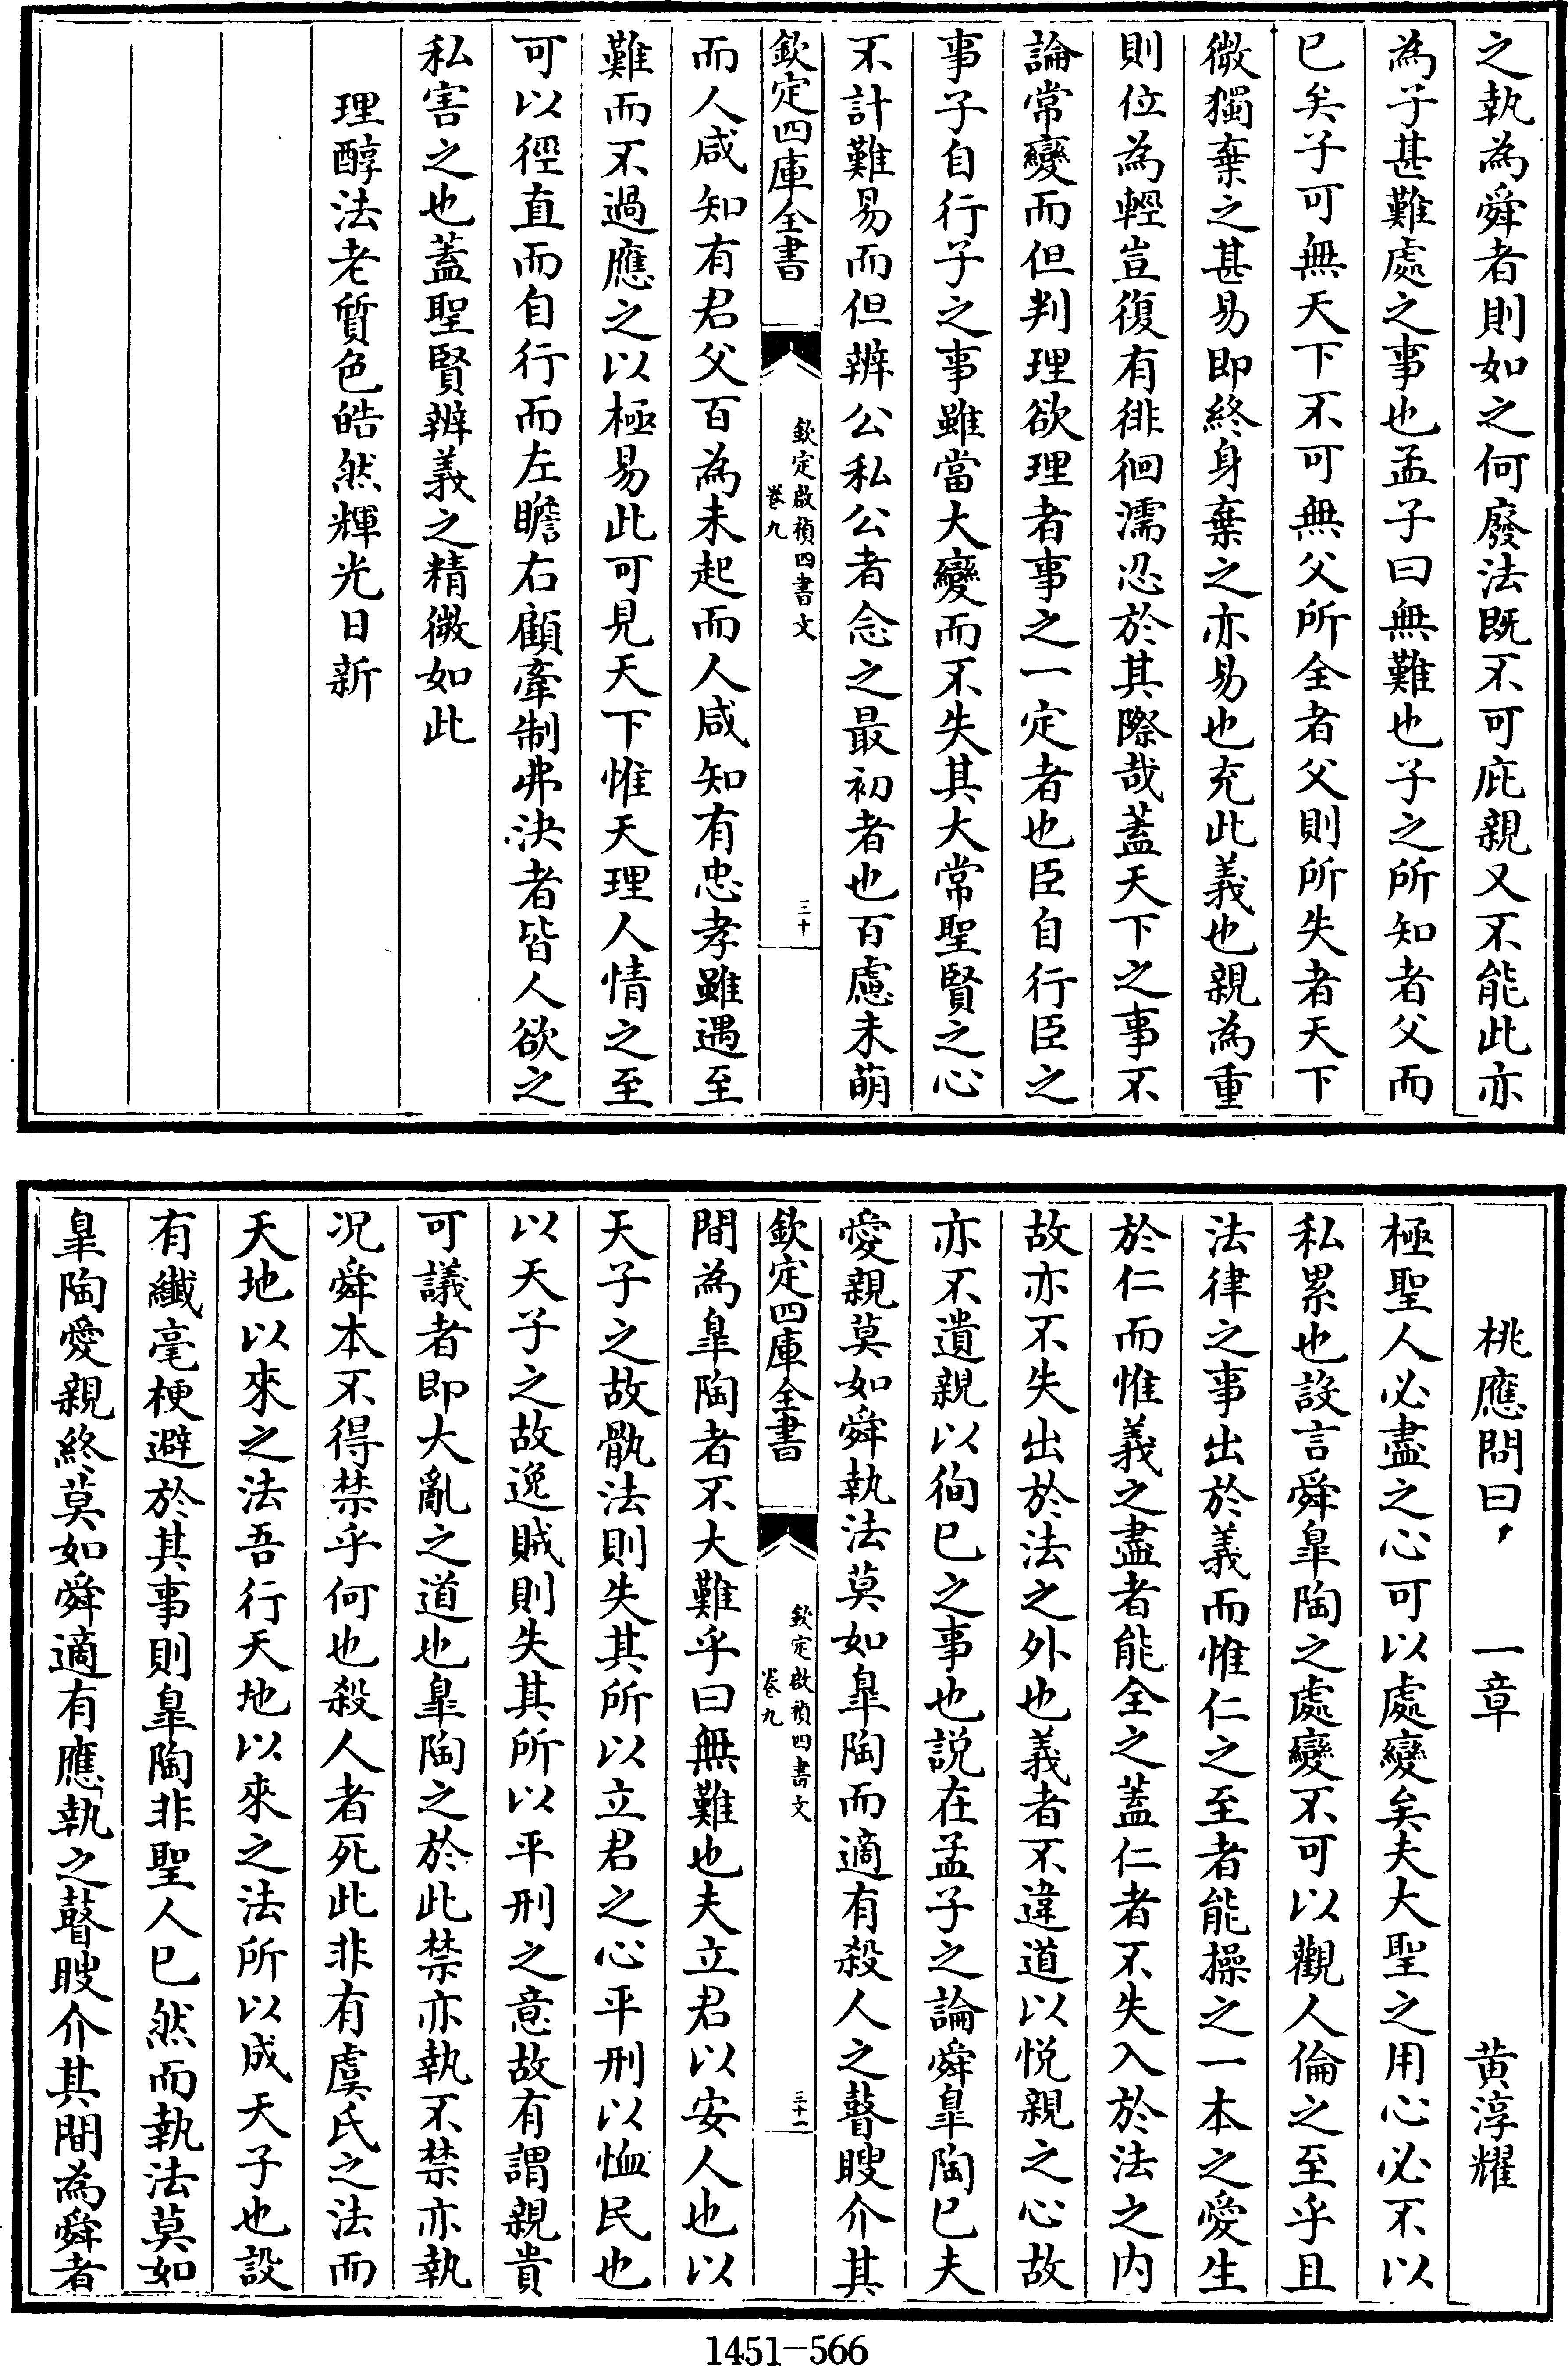 之執為舜者則如之何廢法既不可庇親又不能此亦
為子甚難處之事也孟子曰無難也子之所知者父而
已矣子可無天下不可無父所全者父則所失者天下
微獨棄之甚易即終身棄之亦易也充此義也親為重
則位為輕豈復有徘徊濡忍於其際哉蓋天下之事不
論常變而但判理欲理者事之一定者也臣自行臣之
事子自行子之事雖當大變而不失其大常聖賢之心
不計難易而但辨公私公者念之最初者也百慮未萌
欽定四庫全書
欽定啟禎四書文
卷九
三十
而人咸知有君父百為未起而人咸知有忠孝雖遇至
難而不過應之以極易此可見天下惟天理人情之至
可以徑直而自行而左瞻右顧牽制弗決者皆人欲之
私害之也蓋聖賢辨義之精微如此
理醇法老質色皓然輝光日新
桃應問曰 一章 黃淳耀
極聖人必盡之心可以處變矣夫大聖之用心必不以
私累也設言舜臯陶之處變不可以觀人倫之至乎且
法律之事出於義而惟仁之至者能操之一本之愛生
於仁而惟義之盡者能全之蓋仁者不失入於法之内
故亦不失出於法之外也義者不違道以悅親之心故
亦不遺親以徇已之事也説在孟子之論舜臯陶已夫
愛親莫如舜執法莫如臯陶而適有殺人之瞽瞍介其
欽定四庫全書
欽定啟禎四書文
卷九
三十一
間為臯陶者不大難乎曰無難也夫立君以安人也以
天子之故骫法則失其所以立君之心平刑以恤民也
以天子之故逸賊則失其所以平刑之意故有謂親貴
可議者即大亂之道也臯陶之於此禁亦執不禁亦執
况舜本不得禁乎何也殺人者死此非有虞氏之法而
天地以來之法吾行天地以來之法所以成天子也設
有纖毫梗避於其事則臯陶非聖人已然而執法莫如
臯陶愛親終莫如舜適有應執之瞽瞍介其間為舜者
1451-566